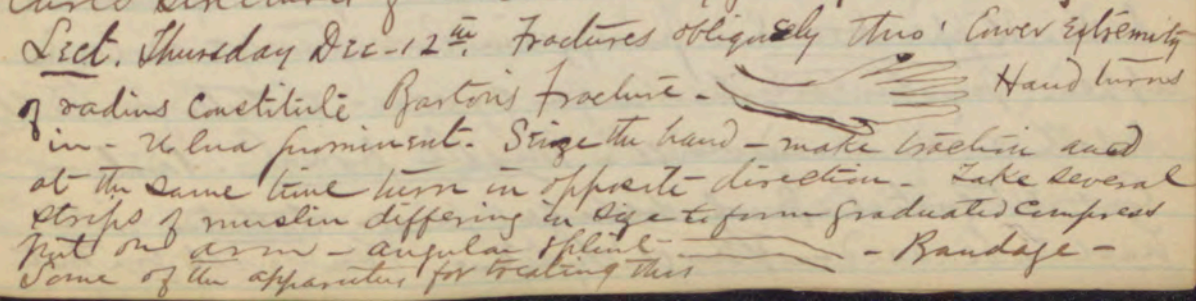 Lect. Thursday Dec-12th. Fractures obliquely thro' lower extremity
of radius constitute Barton's fracture - Hand turns
in - Ulna prominent. Seize the hand - make traction and
at the same time turn in opposite direction - Take several
strips of muslin differing in size to form graduated compress
Put on arm - angular splint - Bandage -
Some of the apparatus for treating this